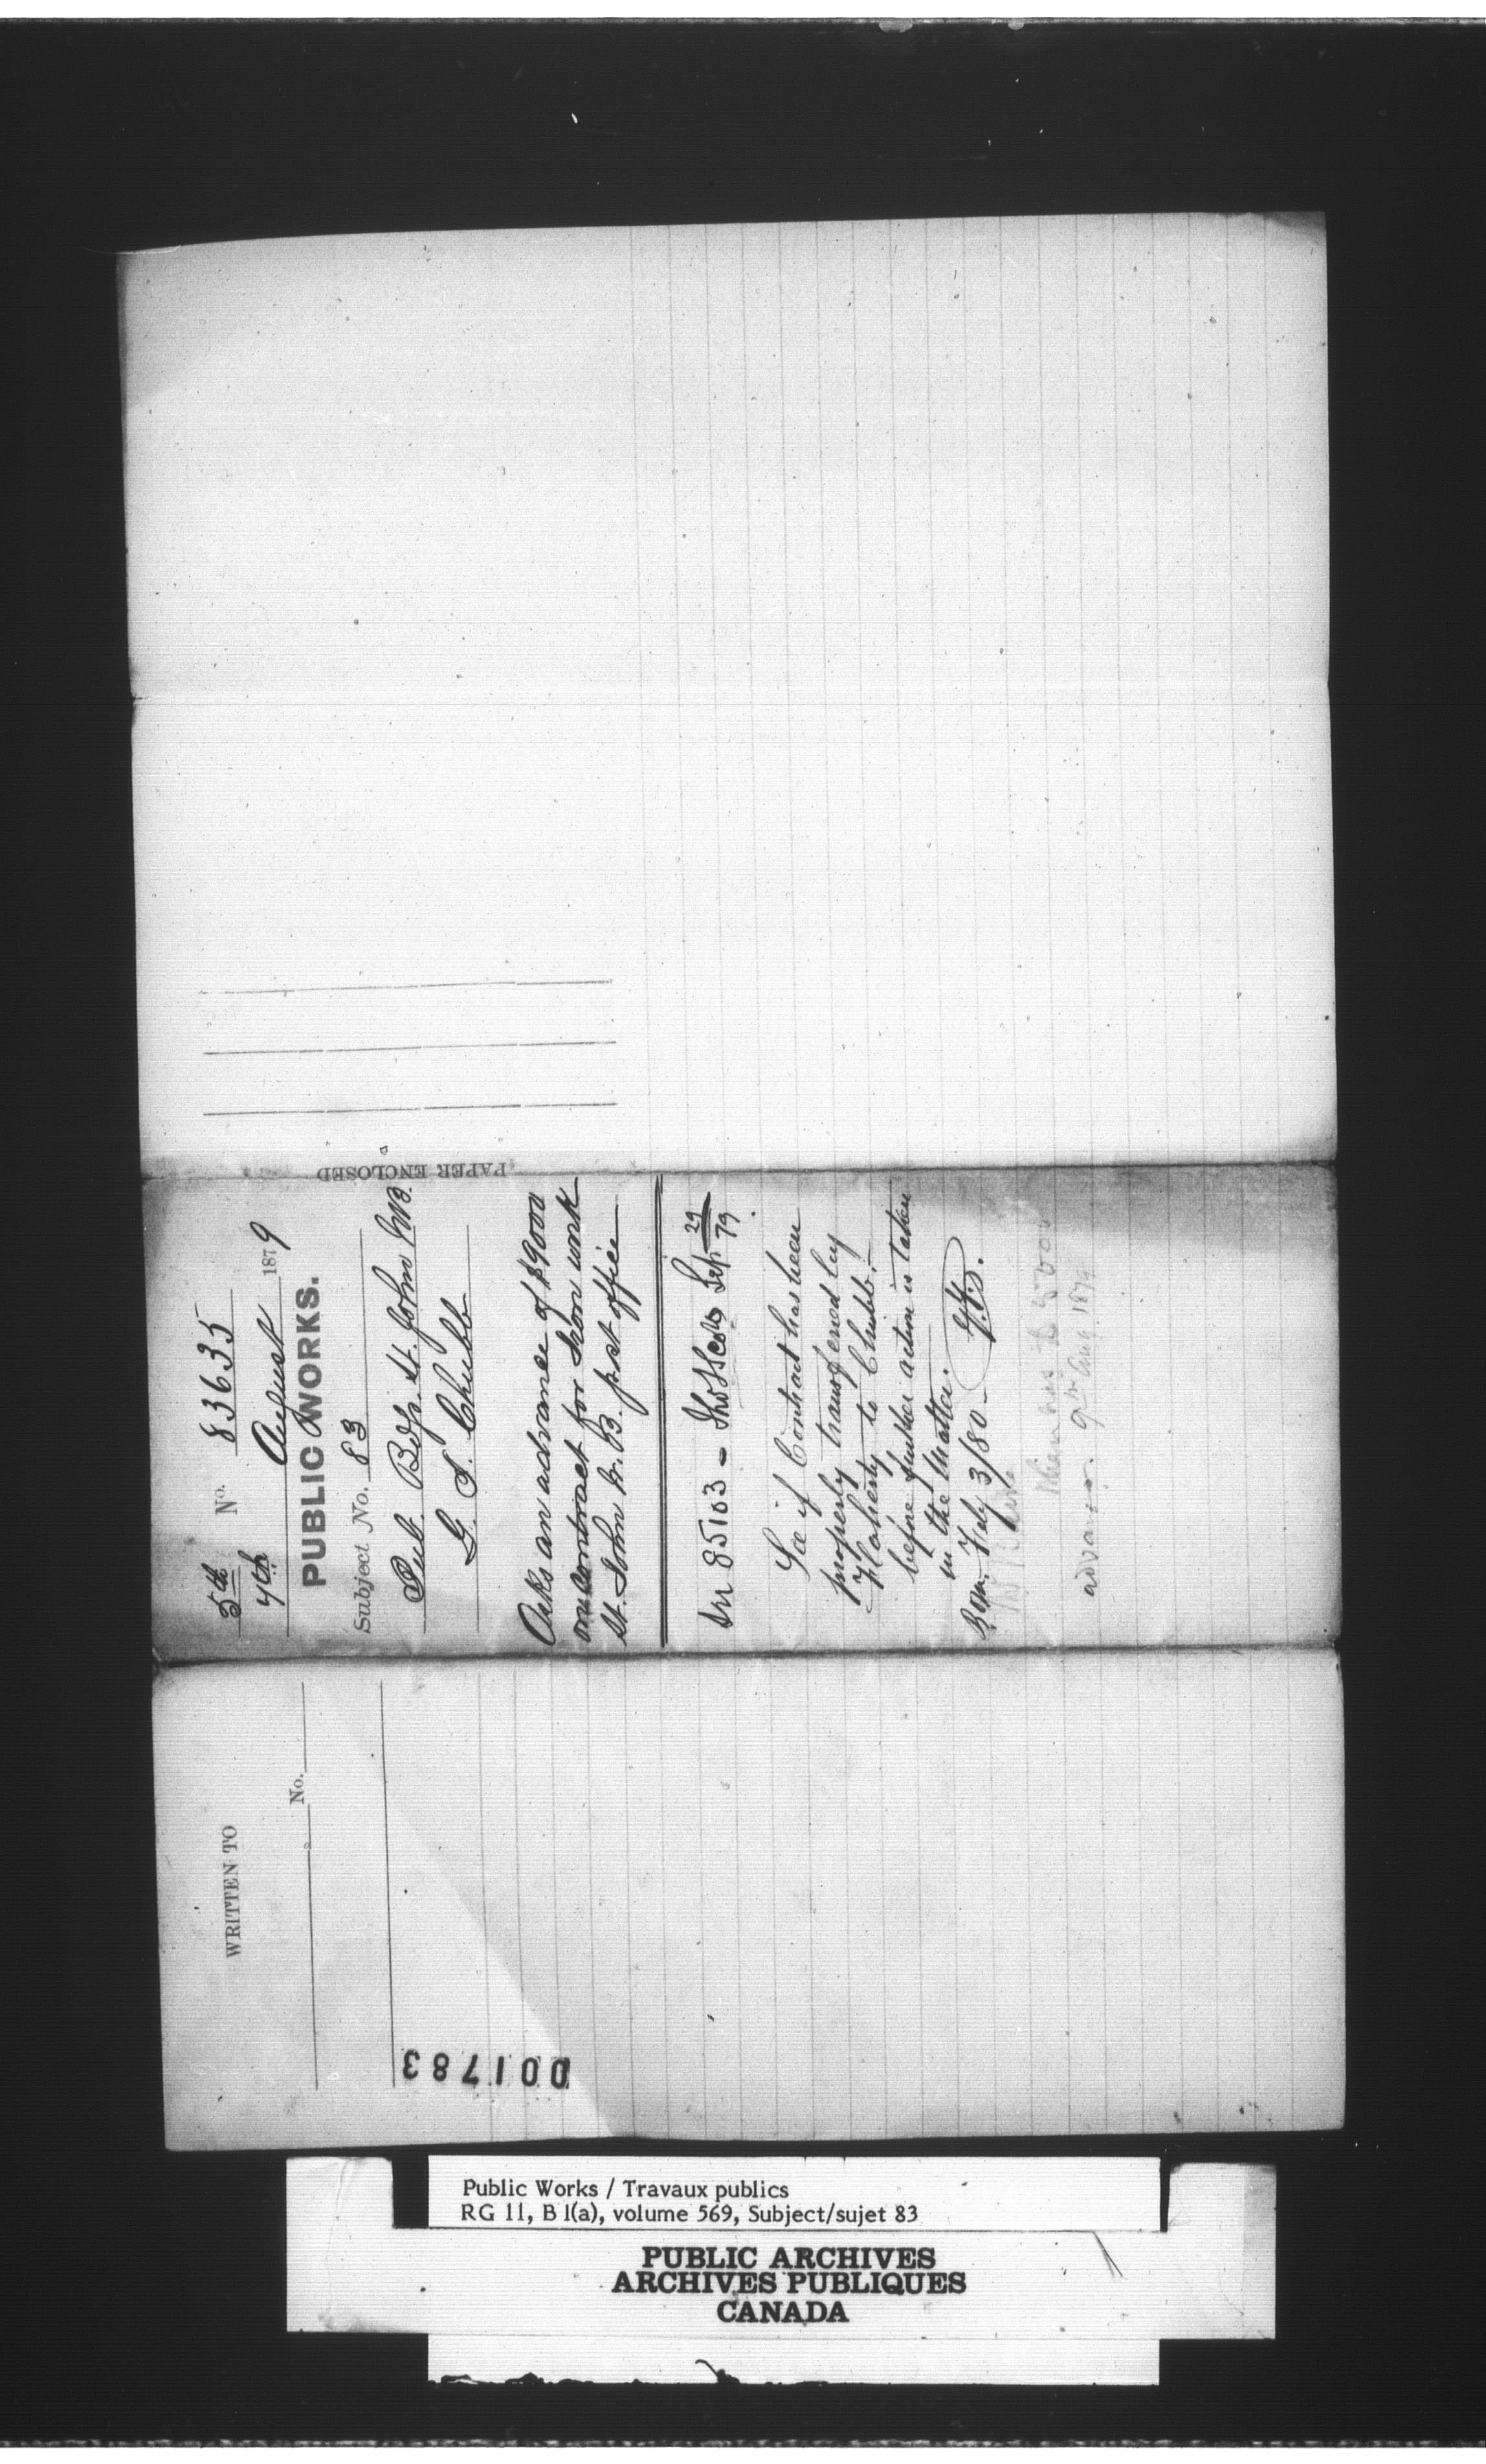 5th No. 83635
4th August 1879
PUBLIC WORKS.
Subject No. 83
Pub. Bdgs. St. John N.B.
G. S. Chubb
Asks an advance of $9000
on Contract for Iron work
St. John N. B. post office
In 85103 - Thos Scott Sep 29/79.
See if Contract has been
properly transferred by
Flaherty to Chubb.
before further action is taken
in the Matter.
Feby 3/80
9th Aug. 1879
PAPER ENCLOSED
WRITTEN TO
No.
001783
Public Works / Travaux publics
RG 11, B 1(a), volume 569, Subject/sujet 83
PUBLIC ARCHIVES
ARCHIVES PUBLIQUES
CANADA